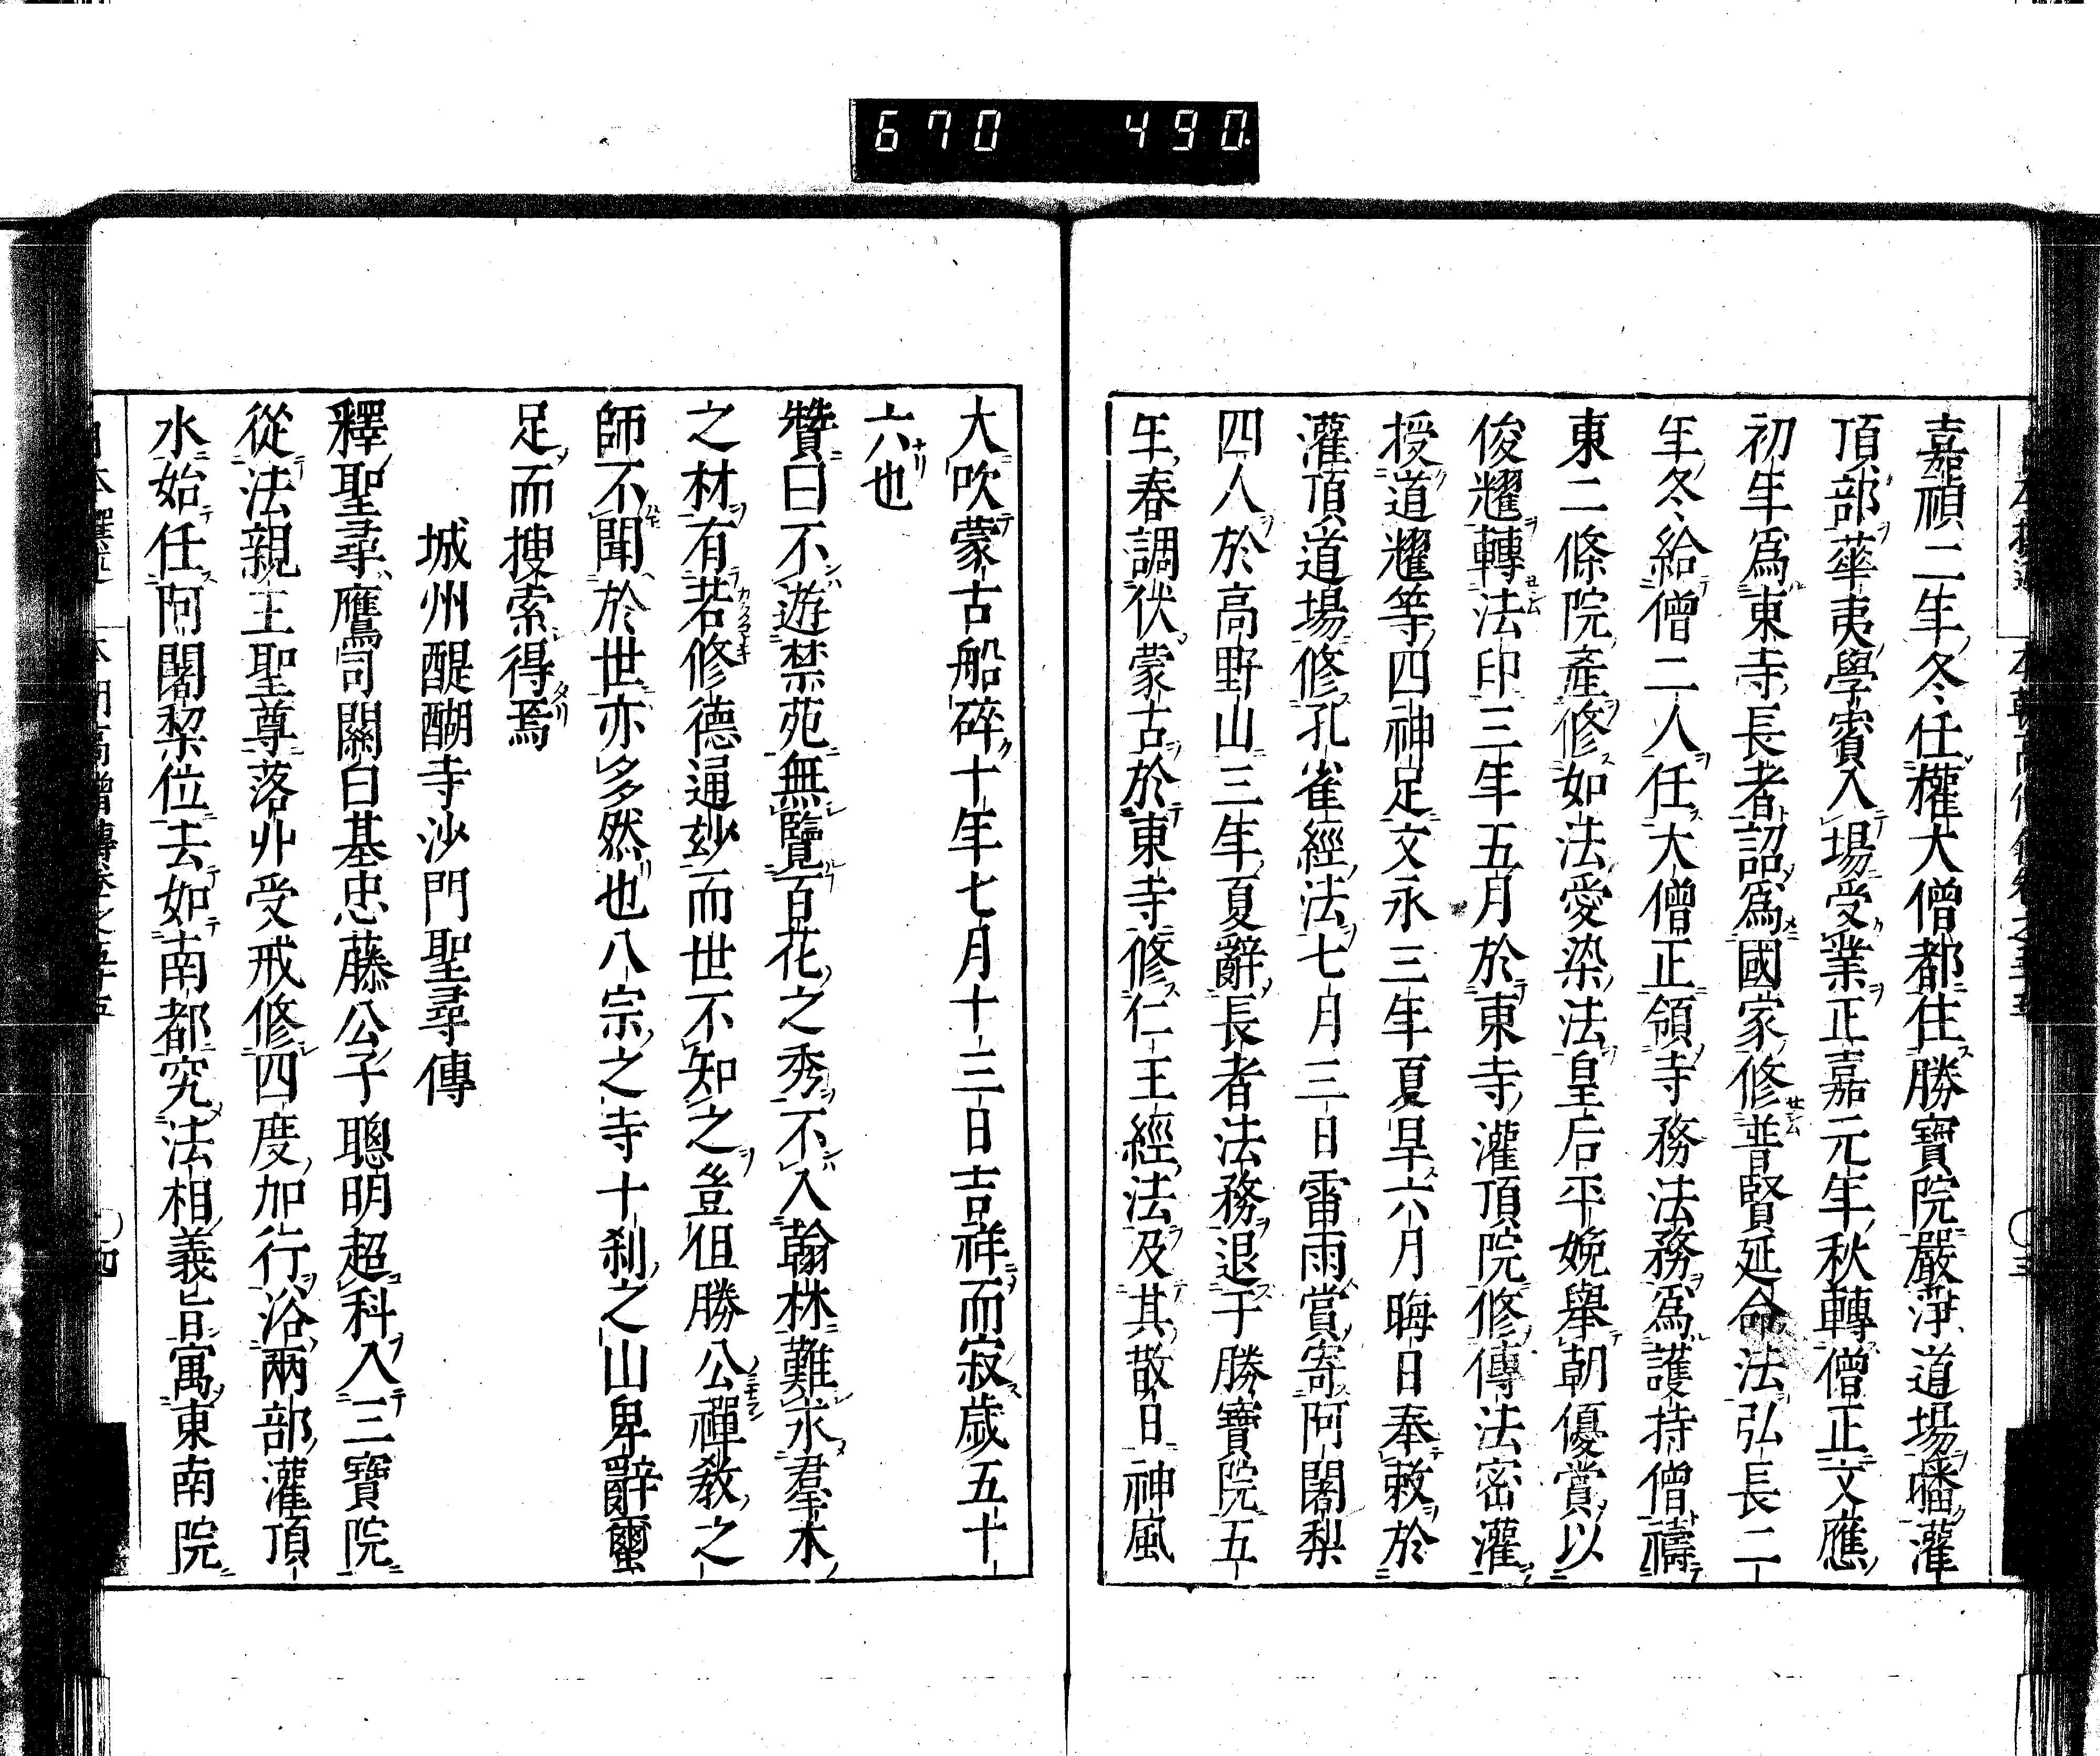 670 490
嘉禎二年冬任權大僧都住勝寶院嚴淨道場譒灌
頂部華夷學賓入場受業正嘉元年秋轉僧正文應
初年爲東寺長者詔爲國家修普賢延命法弘長二
年冬給僧二人任大僧正領寺務法務爲護持僧禱
東二條院產修如法愛染法皇后平娩舉朝優賞以
俊耀轉法印三年五月於東寺灌頂院修傳法密灌
授道耀等四神足文永三年夏旱六月晦日奉敕於
灌頂道場修孔雀經法七月三日雷雨賞寄阿闍梨
四人於高野山三年夏辭長者法務退于勝寶院五
年春調伏蒙古於東寺修仁王經法及其散日神風
大吹蒙古船碎十年七月十三日吉祥而寂歲五十
六也
贊曰不遊禁苑無覽百花之秀不入翰林難求羣木
之材有若修德通玅而世不知之豈但勝公禪教之
師不聞於世亦多然也八宗之寺十剎之山卑辭蜜
足而搜索得焉
城州醍醐寺沙門聖尋傳
釋聖尋鷹司關白基忠藤公子聰明超科入三寶院
從法親王聖尊落丱受戒修四度加行浴兩部灌頂
水始任阿闍梨位去如南都究法相義旨寓東南院